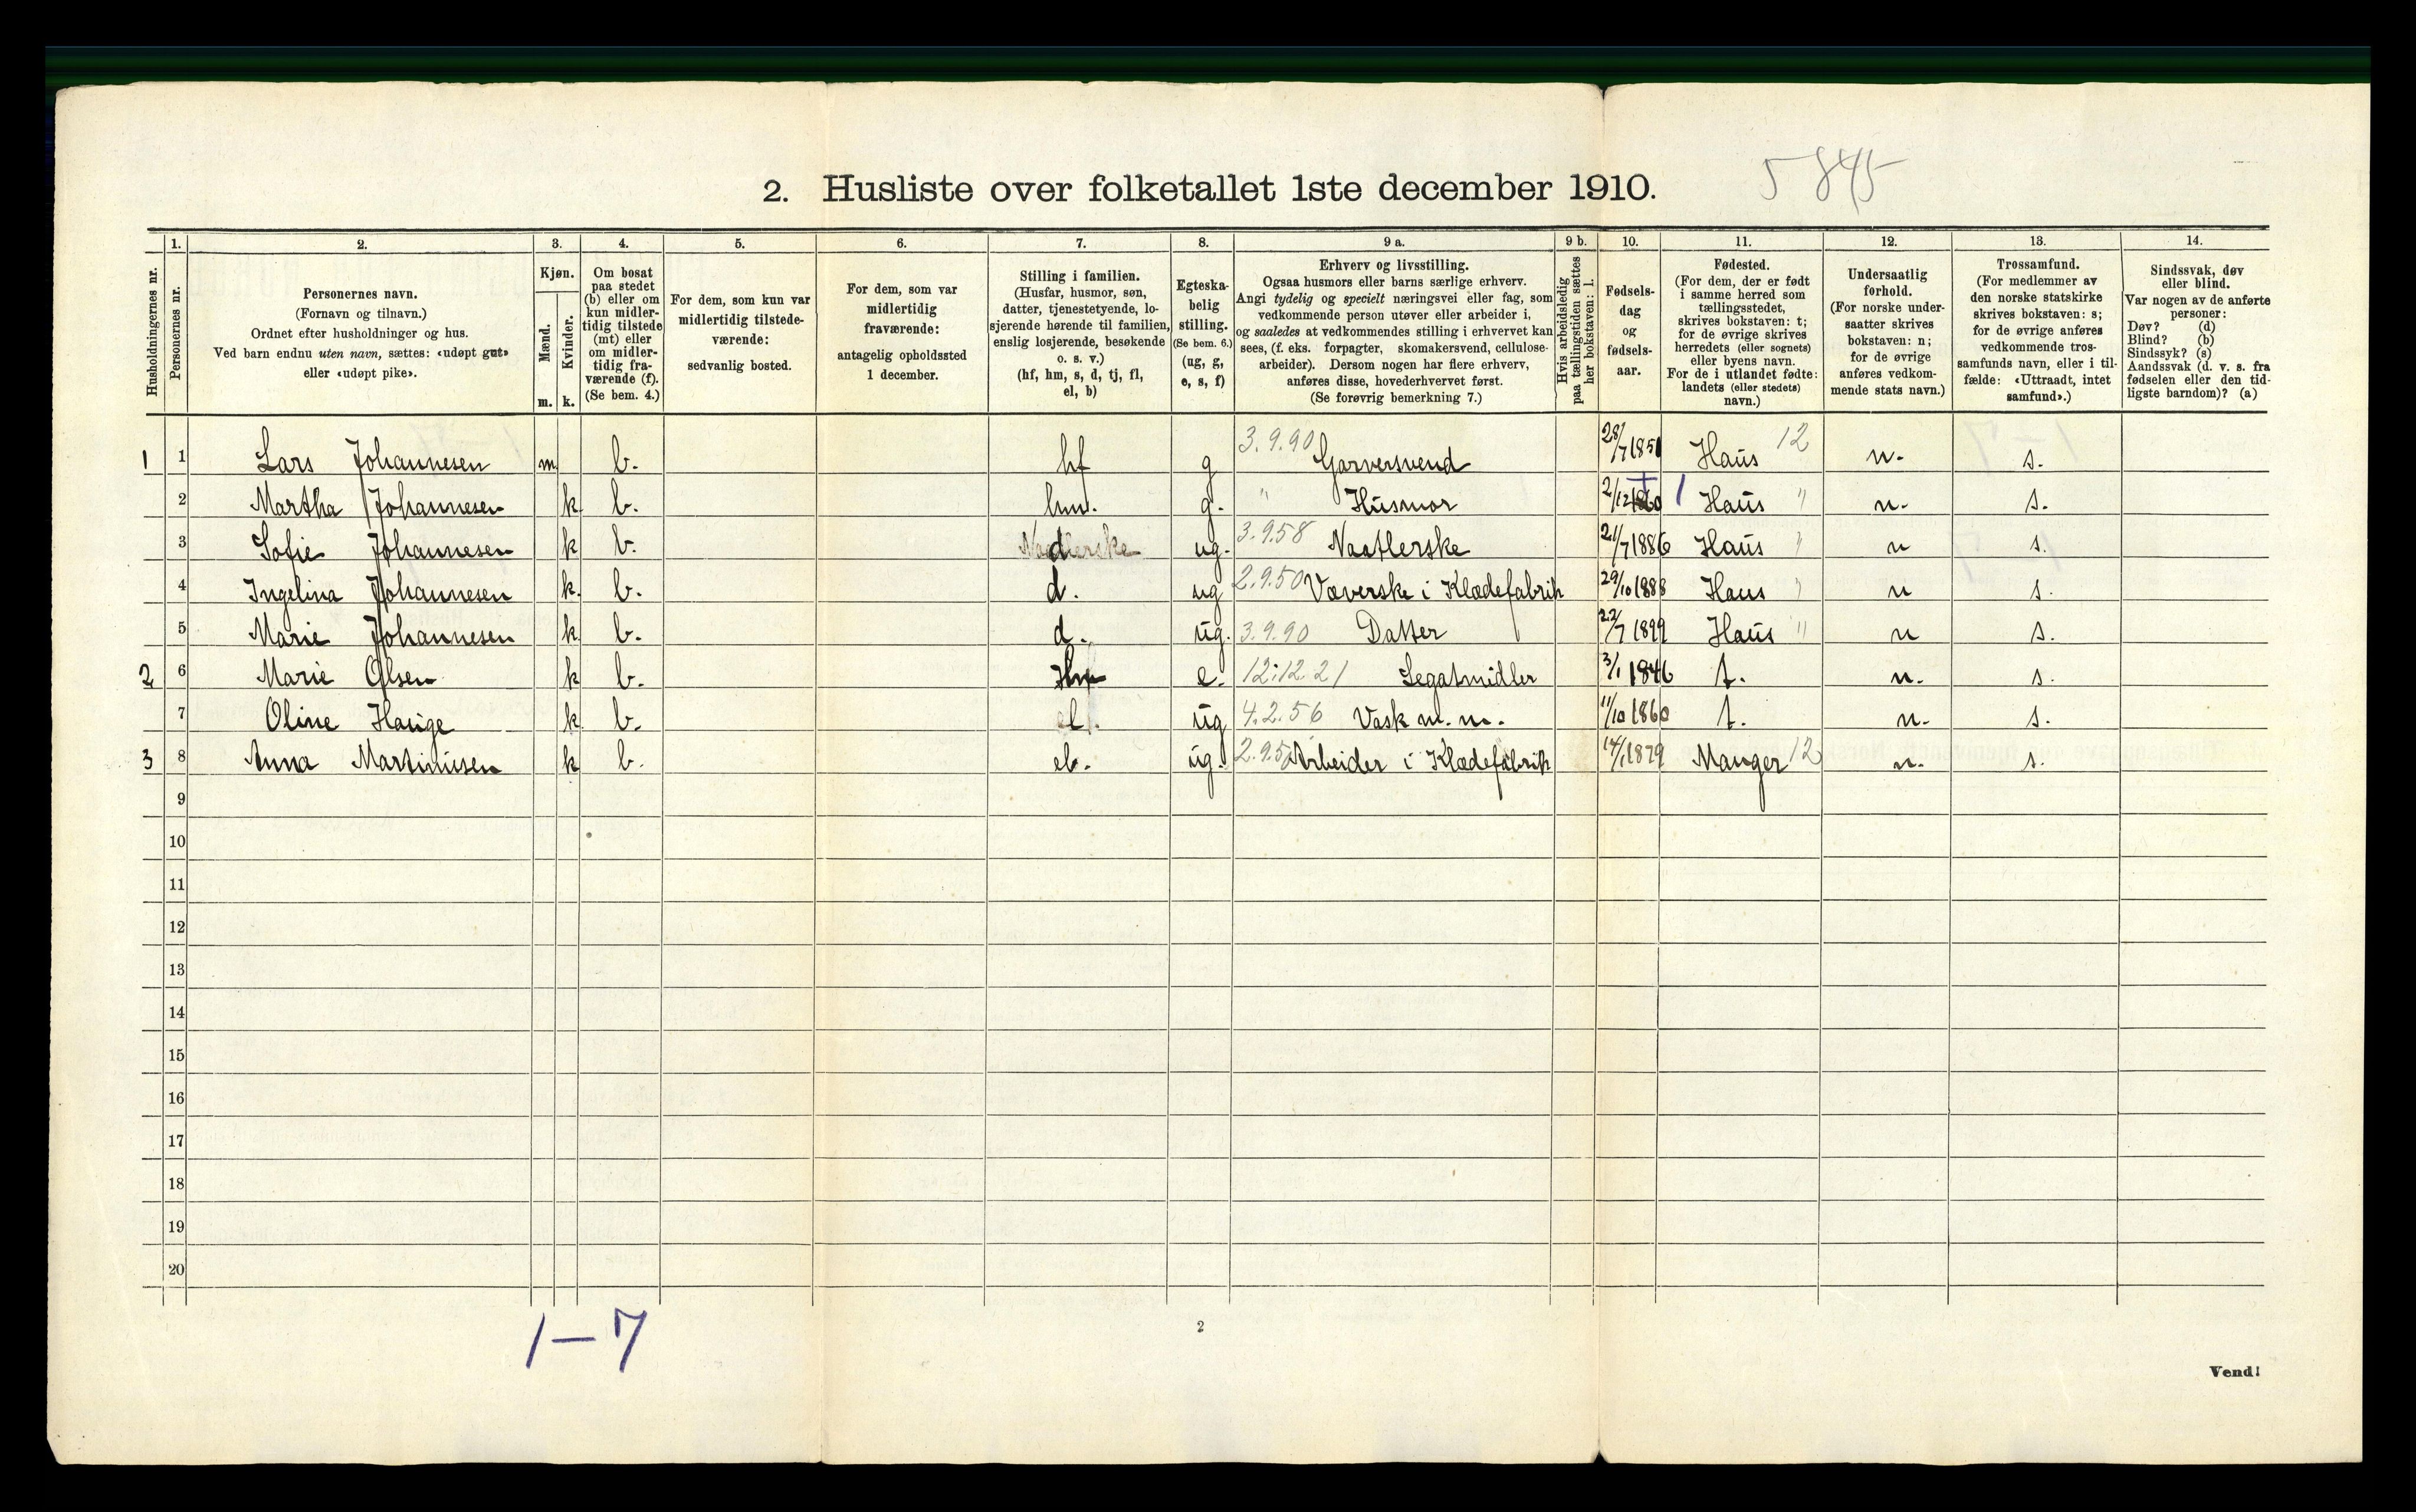 2. Husliste over folketallet 1ste december 1910.
5845
Husholdningernes nr.
1. Personernes nr.
2. Personernes navn.
(Fornavn og tilnavn.)
Ordnet efter husholdninger og hus.
Ved barn endnu uten navn, sættes: «udøpt gut»
eller «udøpt pike».
3. Kjøn.
Mænd. m.
Kvinder. k.
4. Om bosat
paa stedet
(b) eller om
kun midler-
tidig tilstede
(mt) eller
om midler-
tidig fra-
værende (f).
(Se bem. 4.)
5. For dem, som kun var
midlertidig tilstede-
værende:
sedvanlig bosted.
6. For dem, som var
midlertidig
fraværende:
antagelig opholdssted
1 december.
7. Stilling i familien.
(Husfar, husmor, søn,
datter, tjenestetyende, lo-
sjerende hørende til familien,
enslig losjerende, besøkende
o. s. v.)
(hf, hm, s, d, tj, fl,
el, b)
8. Egteska-
belig
stilling.
(Se bem. 6.)
(ug, g,
e, s, f)
9 a. Erhverv og livsstilling.
Ogsaa husmors eller barns særlige erhverv.
Angi tydelig og specielt næringsvei eller fag, som
vedkommende person utøver eller arbeider i,
og saaledes at vedkommendes stilling i erhvervet kan
sees, (f. eks. forpagter, skomakersvend, cellulose-
arbeider). Dersom nogen har flere erhverv,
anføres disse, hovederhvervet først.
(Se forøvrig bemerkning 7.)
9 b. Hvis arbeidsledig
paa tællingstiden sættes
her bokstaven: l.
10. Fødsels-
dag
og
fødsels-
aar.
11. Fødested.
(For dem, der er født
i samme herred som
tællingsstedet,
skrives bokstaven: t;
for de øvrige skrives
herredets (eller sognets)
eller byens navn.
For de i utlandet fødte:
landets (eller stedets)
navn.)
12. Undersaatlig
forhold.
(For norske under-
saatter skrives
bokstaven: n;
for de øvrige
anføres vedkom-
mende stats navn.)
13. Trossamfund.
(For medlemmer av
den norske statskirke
skrives bokstaven: s;
for de øvrige anføres
vedkommende tros-
samfunds navn, eller i til-
fælde: «Uttraadt, intet
samfund».)
14. Sindssvak, døv
eller blind.
Var nogen av de anførte
personer:
Døv? (d)
Blind? (b)
Sindssyk? (s)
Aandssvak (d. v. s. fra
fødselen eller den tid-
ligste barndom)? (a)
1 1 Lars Johannesen m b. hf g 3.9.90 Garversvend 28/7 1851 Haus 12 n. s.
2 Martha Johannesen k b. hm. g. " Husmor 2/12 1860 Haus " n. s.
3 Sofie Johannesen k b. d ug. 3.9.58 Naatlerske 21/7 1886 Haus " n s.
4 Ingelina Johannesen k. b. d. ug 2.9.50 Væverske i Klædefabrik 29/10 1888 Haus " n s.
5 Marie Johannesen k b. d. ug. 3.9.90 Datter 22/7 1899 Haus " n s.
2 6 Marie Olsen k b. e. 12.12.21 Legatmidler 3/1 1846 t. n. s.
7 Oline Hauge k. b. el. ug 4.2.56 Vask m. m. 11/10 1860 t. n. s.
3 8 Anna Martinusen k b. eb. ug. Arbeider i Klædefabrik 14/1 1879 Manger 12 n. s.
9
10
11
12
13
14
15
16
17
18
19
20
1—7
2
Vend!